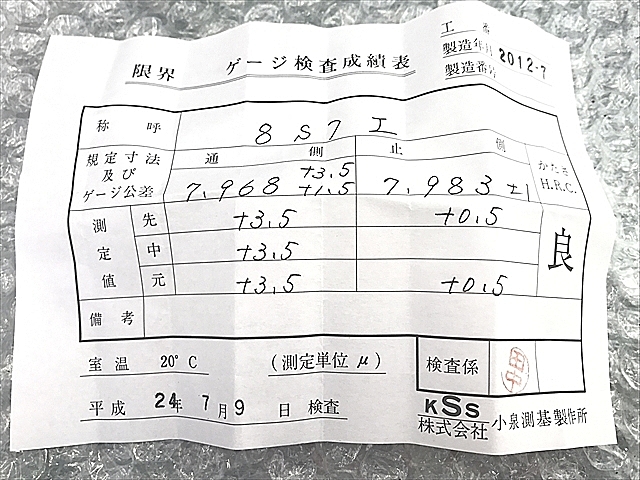 工番
限界 ゲージ検査成績表
製造年月 2012-7
製造番号
称呼 8 S7 工
規定寸法及びゲージ公差
通側 止側
かたさ H.R.C.
7,968 +3,5 +1,5 7,983 ±1
測定値
先 +3,5 +0,5
中 +3,5
元 +3,5 +0,5
良
備考
室温 20°C (測定単位μ)
検査係
平成 24年 7月 9日 検査
KSS
株式会社 小泉測基製作所